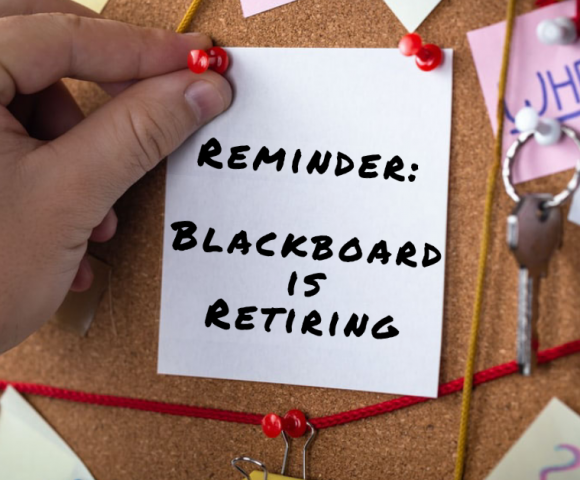 REMINDER:
BLACKBOARD
IS
RETIRING